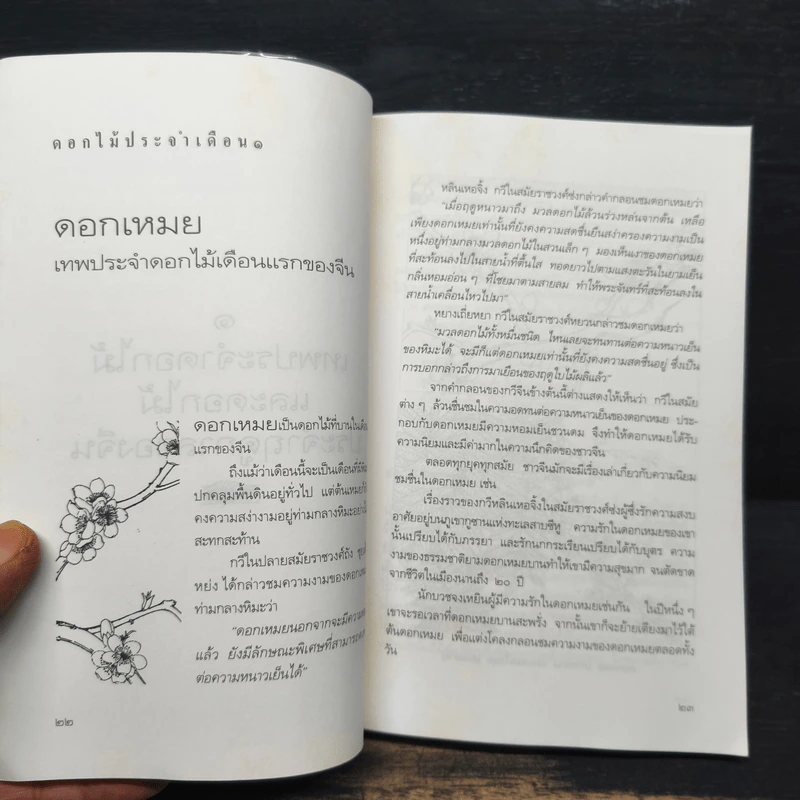 ดอกไม้ประจำเดือน ๑
ดอกเหมย
เทพประจำดอกไม้เดือนแรกของจีน
ดอกเหมยเป็นดอกไม้ที่บานในเดือน
แรกของจีน
ถึงแม้ว่าเดือนนี้จะเป็นเดือนที่มีหิมะ
ปกคลุมพื้นดินอยู่ทั่วไป แต่ต้นเหมยก็
คงความสง่างามอยู่ท่ามกลางหิมะอย่าง
สะทกสะท้าน
กวีในปลายสมัยราชวงศ์ถัง
หย่ง ได้กล่าวชมความงามของดอกเหมย
ท่ามกลางหิมะว่า
"ดอกเหมยนอกจากจะมีความ
แล้ว ยังมีลักษณะพิเศษที่สามารถ
ต่อความหนาวเย็นได้"
๒๒
หลินเหอจิ้ง กวีในสมัยราชวงศ์ซ่งกล่าวคำกลอนชมดอกเหมยว่า
"เมื่อฤดูหนาวมาถึง มวลดอกไม้ล้วนร่วงหล่นจากต้น เหลือ
เพียงดอกเหมยเท่านั้นที่ยังคงความสดชื่นยืนสง่าครองความงามเป็น
หนึ่งอยู่ท่ามกลางมวลดอกไม้ในสวนเล็ก ๆ มองเห็นเงาของดอกเหมย
ที่สะท้อนลงไปในสายน้ำที่ตื้นใส ทอดยาวไปตามแสงตะวันในยามเย็น
กลิ่นหอมอ่อน ๆ ที่โชยมาตามสายลม ทำให้พระจันทร์ที่สะท้อนลงใน
สายน้ำเคลื่อนไหวไปมา"
หยางเถี่ยหยา กวีในสมัยราชวงศ์หยวนกล่าวชมดอกเหมยว่า
"มวลดอกไม้ทั้งหมื่นชนิด ไหนเลยจะทนทานต่อความหนาวเย็น
ของหิมะได้ จะมีก็แต่ดอกเหมยเท่านั้นที่ยังคงความสดชื่นอยู่ ซึ่งเป็น
การบอกกล่าวถึงการมาเยือนของฤดูใบไม้ผลิแล้ว"
จากคำกลอนของกวีจีนข้างต้นนี้ต่างแสดงให้เห็นว่า กวีในสมัย
ต่าง ๆ ล้วนชื่นชมในความอดทนต่อความหนาวเย็นของดอกเหมย ประ-
กอบกับดอกเหมยมีความหอมเย็นชวนดม จึงทำให้ดอกเหมยได้รับ
ความนิยมและมีค่ามากในความนึกคิดของชาวจีน
ตลอดทุกยุคทุกสมัย ชาวจีนมักจะมีเรื่องเล่าเกี่ยวกับความนิยม
ชมชื่นในดอกเหมย เช่น
เรื่องราวของกวีหลินเหอจิ้งในสมัยราชวงศ์ซ่งผู้ซึ่งรักความสงบ
อาศัยอยู่บนภูเขากูซานแห่งทะเลสาบซีหู ความรักในดอกเหมยของเขา
นั้นเปรียบได้กับภรรยา และรักนกกระเรียนเปรียบได้กับบุตร ความ
งามของธรรมชาติยามดอกเหมยบานทำให้เขามีความสุขมาก จนตัดขาด
จากชีวิตในเมืองนานถึง ๒๐ ปี
นักบวชจงเหยินผู้มีความรักในดอกเหมยเช่นกัน ในปีหนึ่ง ๆ
เขาจะรอเวลาที่ดอกเหมยบานสะพรั่ง จากนั้นเขาก็จะย้ายเตียงมาไว้ใต้
ต้นดอกเหมย เพื่อแต่งโคลงกลอนชมความงามของดอกเหมยตลอดทั้ง
วัน
๒๓